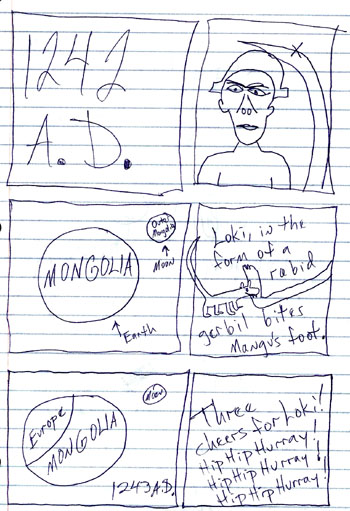 1242
A.D.
MONGOLIA
Outer
Mongolia
Moon
Earth
Loki, in the
form of a
rabid
gerbil bites
Mangus foot.
Europe
MONGOLIA
Moon
1243 A.D.
Three
cheers for Loki!
Hip Hip Hurray!
Hip Hip Hurray!
Hip Hip Hurray!